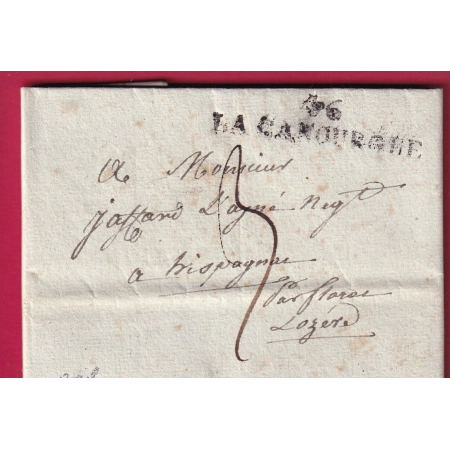 46
LA CANOURGUE
a Monsieur
jaffard L'ayné Negt
3
a hispagnac
Par florac
Lozère